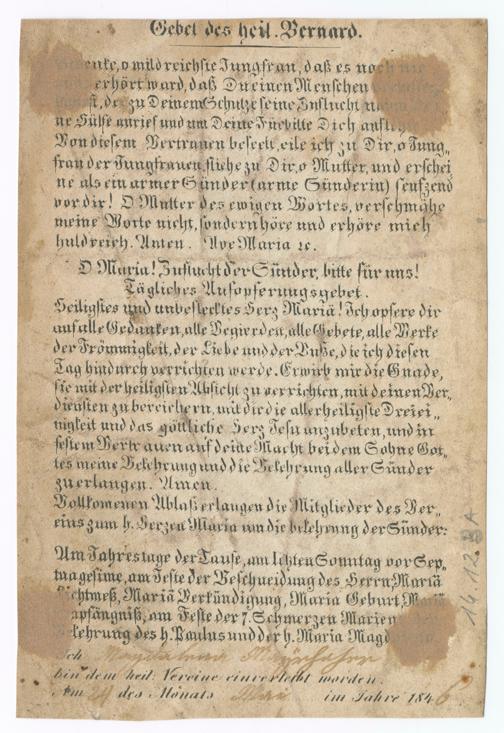 Gebet des heil. Bernard.
Gedenke, o mildreichste Jungfrau, daß es noch nie
erhört ward, daß Du einen Menschen
der zu Deinem Schutze seine Zuflucht nahm,
ne Hülfe anrief und um Deine Fürbitte Dich anflehte
Von diesem Vertrauen beseelt, eile ich zu Dir, o Jung„
frau der Jungfrauen, fliehe zu Dir, o Mutter, und erschei
ne als ein armer Sünder (arme Sünderin) seufzend
vor dir! O Mutter des ewigen Wortes, verschmähe
meine Worte nicht, sondern höre und erhöre mich
huldreich. Amen. Ave Maria ꝛc.
O Maria! Zuflucht der Sünder, bitte für uns!
Tägliches Aufopferungsgebet.
Heiligstes und unbeflecktes Herz Mariä! Ich opfere dir
auf alle Gedanken, alle Begierden, alle Gebete, alle Werke
der Frömmigkeit, der Liebe und der Buße, die ich diesen
Tag hindurch verrichten werde. Erwirb mir die Gnade,
sie mit der heiligsten Absicht zu verrichten, mit deinen Ver„
diensten zu bereichern, mit dir die allerheiligste Dreiei„
nigkeit und das göttliche Herz Jesu anzubeten, und in
festem Vertrauen auf deine Macht bei dem Sohne Got„
tes meine Bekehrung und die Bekehrung aller Sünder
zu erlangen. Amen.
Vollkomenen Ablaß erlangen die Mitglieder des Ver„
eins zum h. Herzen Maria um die bekehrung der Sünder:
Am Jahrestage der Taufe, am lchten Sonntag vor Sep„
tuagesime, am Feste der Beschneidung des Herrn, Mariä
Lichtmeß, Mariä Verkündigung, Maria Geburt, Mariä
Empfängniß, am Feste der 7. Schmerzen Marien
Bekehrung des h. Paulus und der h. Maria Magdalena.
Ich Magdalena
bin dem heil. Vereine einverleibt worden.
Am 24 des Monats Mai im Jahre 1846
14123A